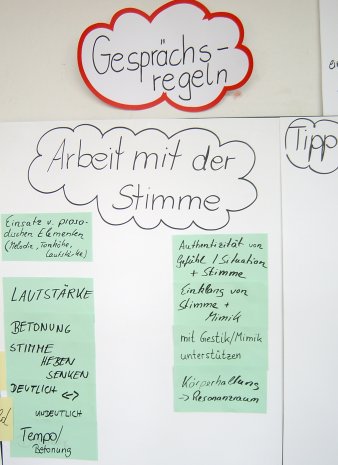 Gesprächs-
regeln
Arbeit mit der
Stimme
Tipp
Einsatz v. proso-
dischen Elementen
(Melodie, Tonhöhe,
Lautstärke)
LAUTSTÄRKE
BETONUNG
STIMME
HEBEN
SENKEN
DEUTLICH <->
UNDEUTLICH
Tempo/
Betonung
Authentizität von
Gefühl / Situation
+ Stimme
Einklang von
Stimme +
Mimik
mit Gestik/Mimik
unterstützen
Körperhaltung
-> Resonanzraum